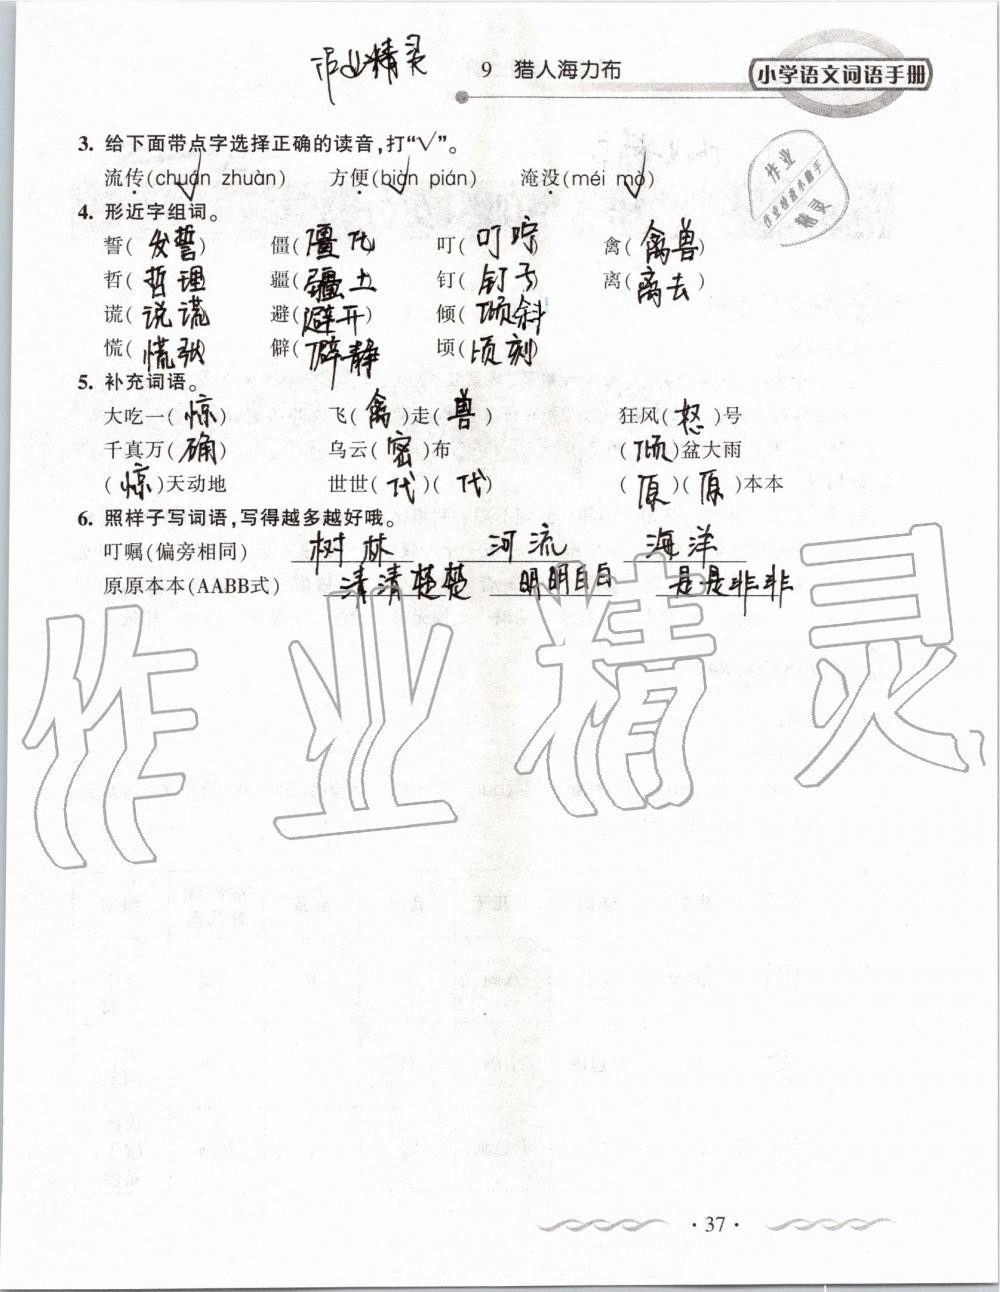 作业精灵
9 猎人海力布
小学语文词语手册
3. 给下面带点字选择正确的读音,打“√”。
流传(chuán zhuàn) 方便(biàn pián) 淹没(méi mò)
4. 形近字组词。
誓(发誓) 僵(僵化) 叮(叮咛) 禽(禽兽)
哲(哲理) 疆(疆土) 钉(钉子) 离(离去)
谎(说谎) 避(避开) 倾(倾斜)
慌(慌张) 僻(僻静) 顷(顷刻)
5. 补充词语。
大吃一(惊) 飞(禽)走(兽) 狂风(怒)号
千真万(确) 乌云(密)布 (倾)盆大雨
(惊)天动地 世世(代)(代) (原)(原)本本
6. 照样子写词语,写得越多越好哦。
叮嘱(偏旁相同) 树林 河流 海洋
原原本本(AABB式) 清清楚楚 明明白白 是是非非
作业精灵
·37·